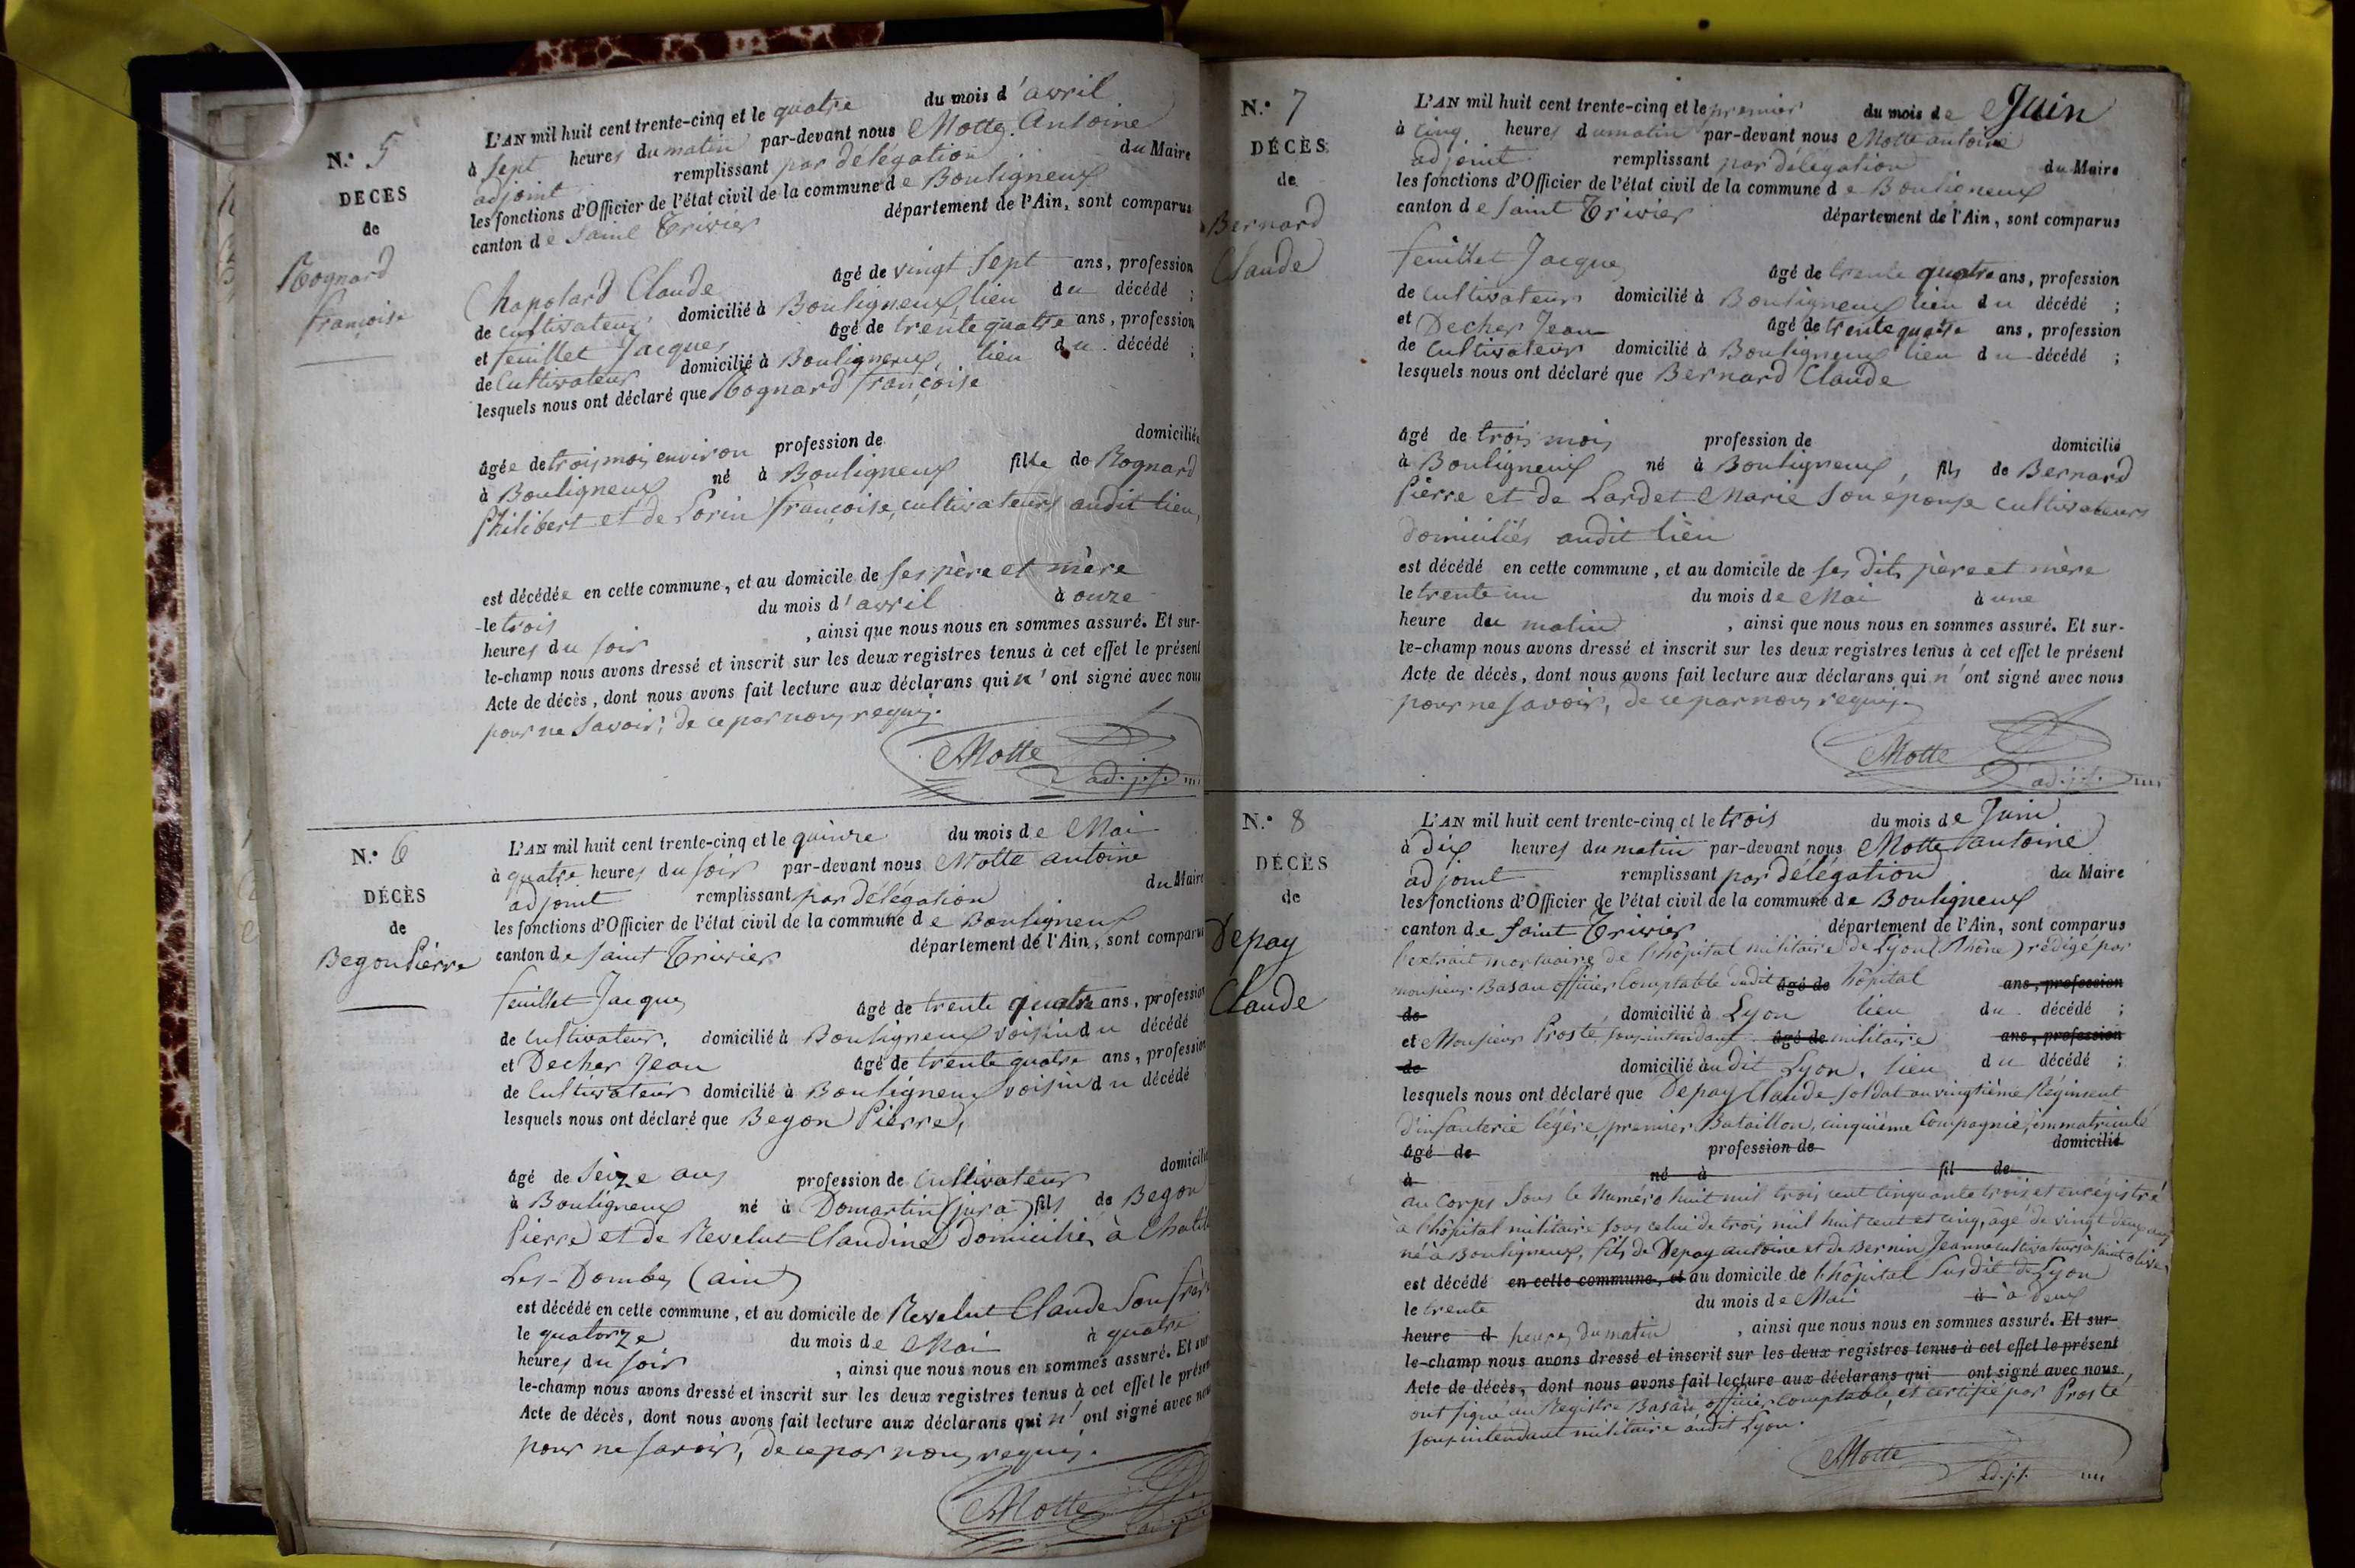 N.° 5
DÉCÈS
de
Rognard
françoise
L'AN mil huit cent trente-cinq et le quatre du mois d'avril
à sept heures du matin par-devant nous Motte Antoine
adjoint remplissant par délégation du Maire
les fonctions d'Officier de l'état civil de la commune de Bouligneux
canton de Saint Trivier département de l'Ain, sont comparus
Chapolard Claude âgé de vingt sept ans, profession
de cultivateur domicilié à Bouligneux, lieu du décédé ;
et feuillet Jacques âgé de trente quatre ans, profession
de Cultivateur domicilié à Bouligneux, lieu du décédé ;
lesquels nous ont déclaré que Rognard françoise
âgée de trois mois environ profession de domiciliée
à Bouligneux né à Bouligneux fille de Rognard
Philibert et de Lorin françoise, cultivateurs audit lieu,
est décédée en cette commune, et au domicile de ses père et mère
le trois du mois d'avril à onze
heures du soir , ainsi que nous nous en sommes assuré. Et sur-
le-champ nous avons dressé et inscrit sur les deux registres tenus à cet effet le présent
Acte de décès, dont nous avons fait lecture aux déclarans qui n'ont signé avec nous
pour ne savoir, de ce par nous requis.
Motte
adj.t
N.° 6
DÉCÈS
de
Begon Pierre
L'AN mil huit cent trente-cinq et le quinze du mois de Mai
à quatre heures du soir par-devant nous Motte antoine
adjoint remplissant par délégation du Maire
les fonctions d'Officier de l'état civil de la commune de Bouligneux
canton de Saint Trivier département de l'Ain, sont comparus
feuillet Jacques âgé de trente quatre ans, profession
de Cultivateur, domicilié à Bouligneux voisin du décédé
et Decher Jean âgé de trente quatre ans, profession
de Cultivateur domicilié à Bouligneux voisin du décédé
lesquels nous ont déclaré que Begon Pierre,
âgé de Seize ans profession de Cultivateur domicilié
à Bouligneux né à Domartin (jura) fils de Begon
Pierre et de Revelut Claudine domiciliés à Chatill
Les-Dombes (ain)
est décédé en cette commune, et au domicile de Revelut Claude Son frère
le quatorze du mois de Mai à quatre
heures du soir , ainsi que nous nous en sommes assuré. Et sur
le-champ nous avons dressé et inscrit sur les deux registres tenus à cet effet le présen
Acte de décès, dont nous avons fait lecture aux déclarans qui n'ont signé avec nou
pour ne savoir, de ce par nous requis.
Motte
N.° 7
DÉCÈS
de
Bernard
Claude
L'AN mil huit cent trente-cinq et le premier du mois de Juin
à cinq heures du matin par-devant nous Motte antoine
adjoint remplissant par délégation du Maire
les fonctions d'Officier de l'état civil de la commune de Bouligneux
canton de Saint Trivier département de l'Ain, sont comparus
feuillet Jacque âgé de trente quatre ans, profession
de Cultivateur domicilié à Bouligneux lieu du décédé ;
et Decher Jean âgé de trente quatre ans, profession
de Cultivateur domicilié à Bouligneux lieu du décédé ;
lesquels nous ont déclaré que Bernard Claude
âgé de trois mois profession de domicilié
à Bouligneux né à Bouligneux, fils de Bernard
Pierre et de Lardet Marie Son épouse cultivateurs
domiciliés audit lieu
est décédé en cette commune, et au domicile de ses dits père et mère
le trente un du mois de Mai à une
heure du matin , ainsi que nous nous en sommes assuré. Et sur-
le-champ nous avons dressé et inscrit sur les deux registres tenus à cet effet le présent
Acte de décès, dont nous avons fait lecture aux déclarans qui n'ont signé avec nous
pour ne savoir, de ce par nous requis.
Motte
adj.t
N.° 8
DÉCÈS
de
Depay
Claude
L'AN mil huit cent trente-cinq et le trois du mois de Juin
à dix heures du matin par-devant nous Motte antoine
adjoint remplissant par délégation du Maire
les fonctions d'Officier de l'état civil de la commune de Bouligneux
canton de Saint Trivier département de l'Ain, sont comparus
l'extrait mortuaire de l'hôpital militaire de Lyon (Rhône) rédigé par
monsieur Basan officier Comptable dudit âgé de hôpital ans, profession
de domicilié à Lyon lieu du décédé ;
et Monsieur Prosté sous-intendant âgé de militaire ans, profession
de domicilié audit Lyon, lieu du décédé ;
lesquels nous ont déclaré que Depay Claude Soldat au vingtième Régiment
d'infanterie légère, premier Bataillon, cinquième Compagnie, immatriculé
âgé de profession de domicilié
à né à fil de
au Corps Sous le Numéro huit mil trois cent cinquante trois et enrégistré
à l'hôpital militaire sous celui de trois mil huit cent et cinq, âgé de vingt deux ans
né à Bouligneux, fils de Depay antoine et de Bernin Jeanne cultivateurs à Saint olive,
est décédé en cette commune, et au domicile de l'hôpital Susdit de Lyon
le trente du mois de Mai à à deux
heure d heures du matin , ainsi que nous nous en sommes assuré. Et sur-
le-champ nous avons dressé et inscrit sur les deux registres tenus à cet effet le présent
Acte de décès, dont nous avons fait lecture aux déclarans qui ont signé avec nous,
ont signé au Registre Basan officier comptable, et certifié par Prosté
sous-intendant militaire audit Lyon.
Motte
adj.t